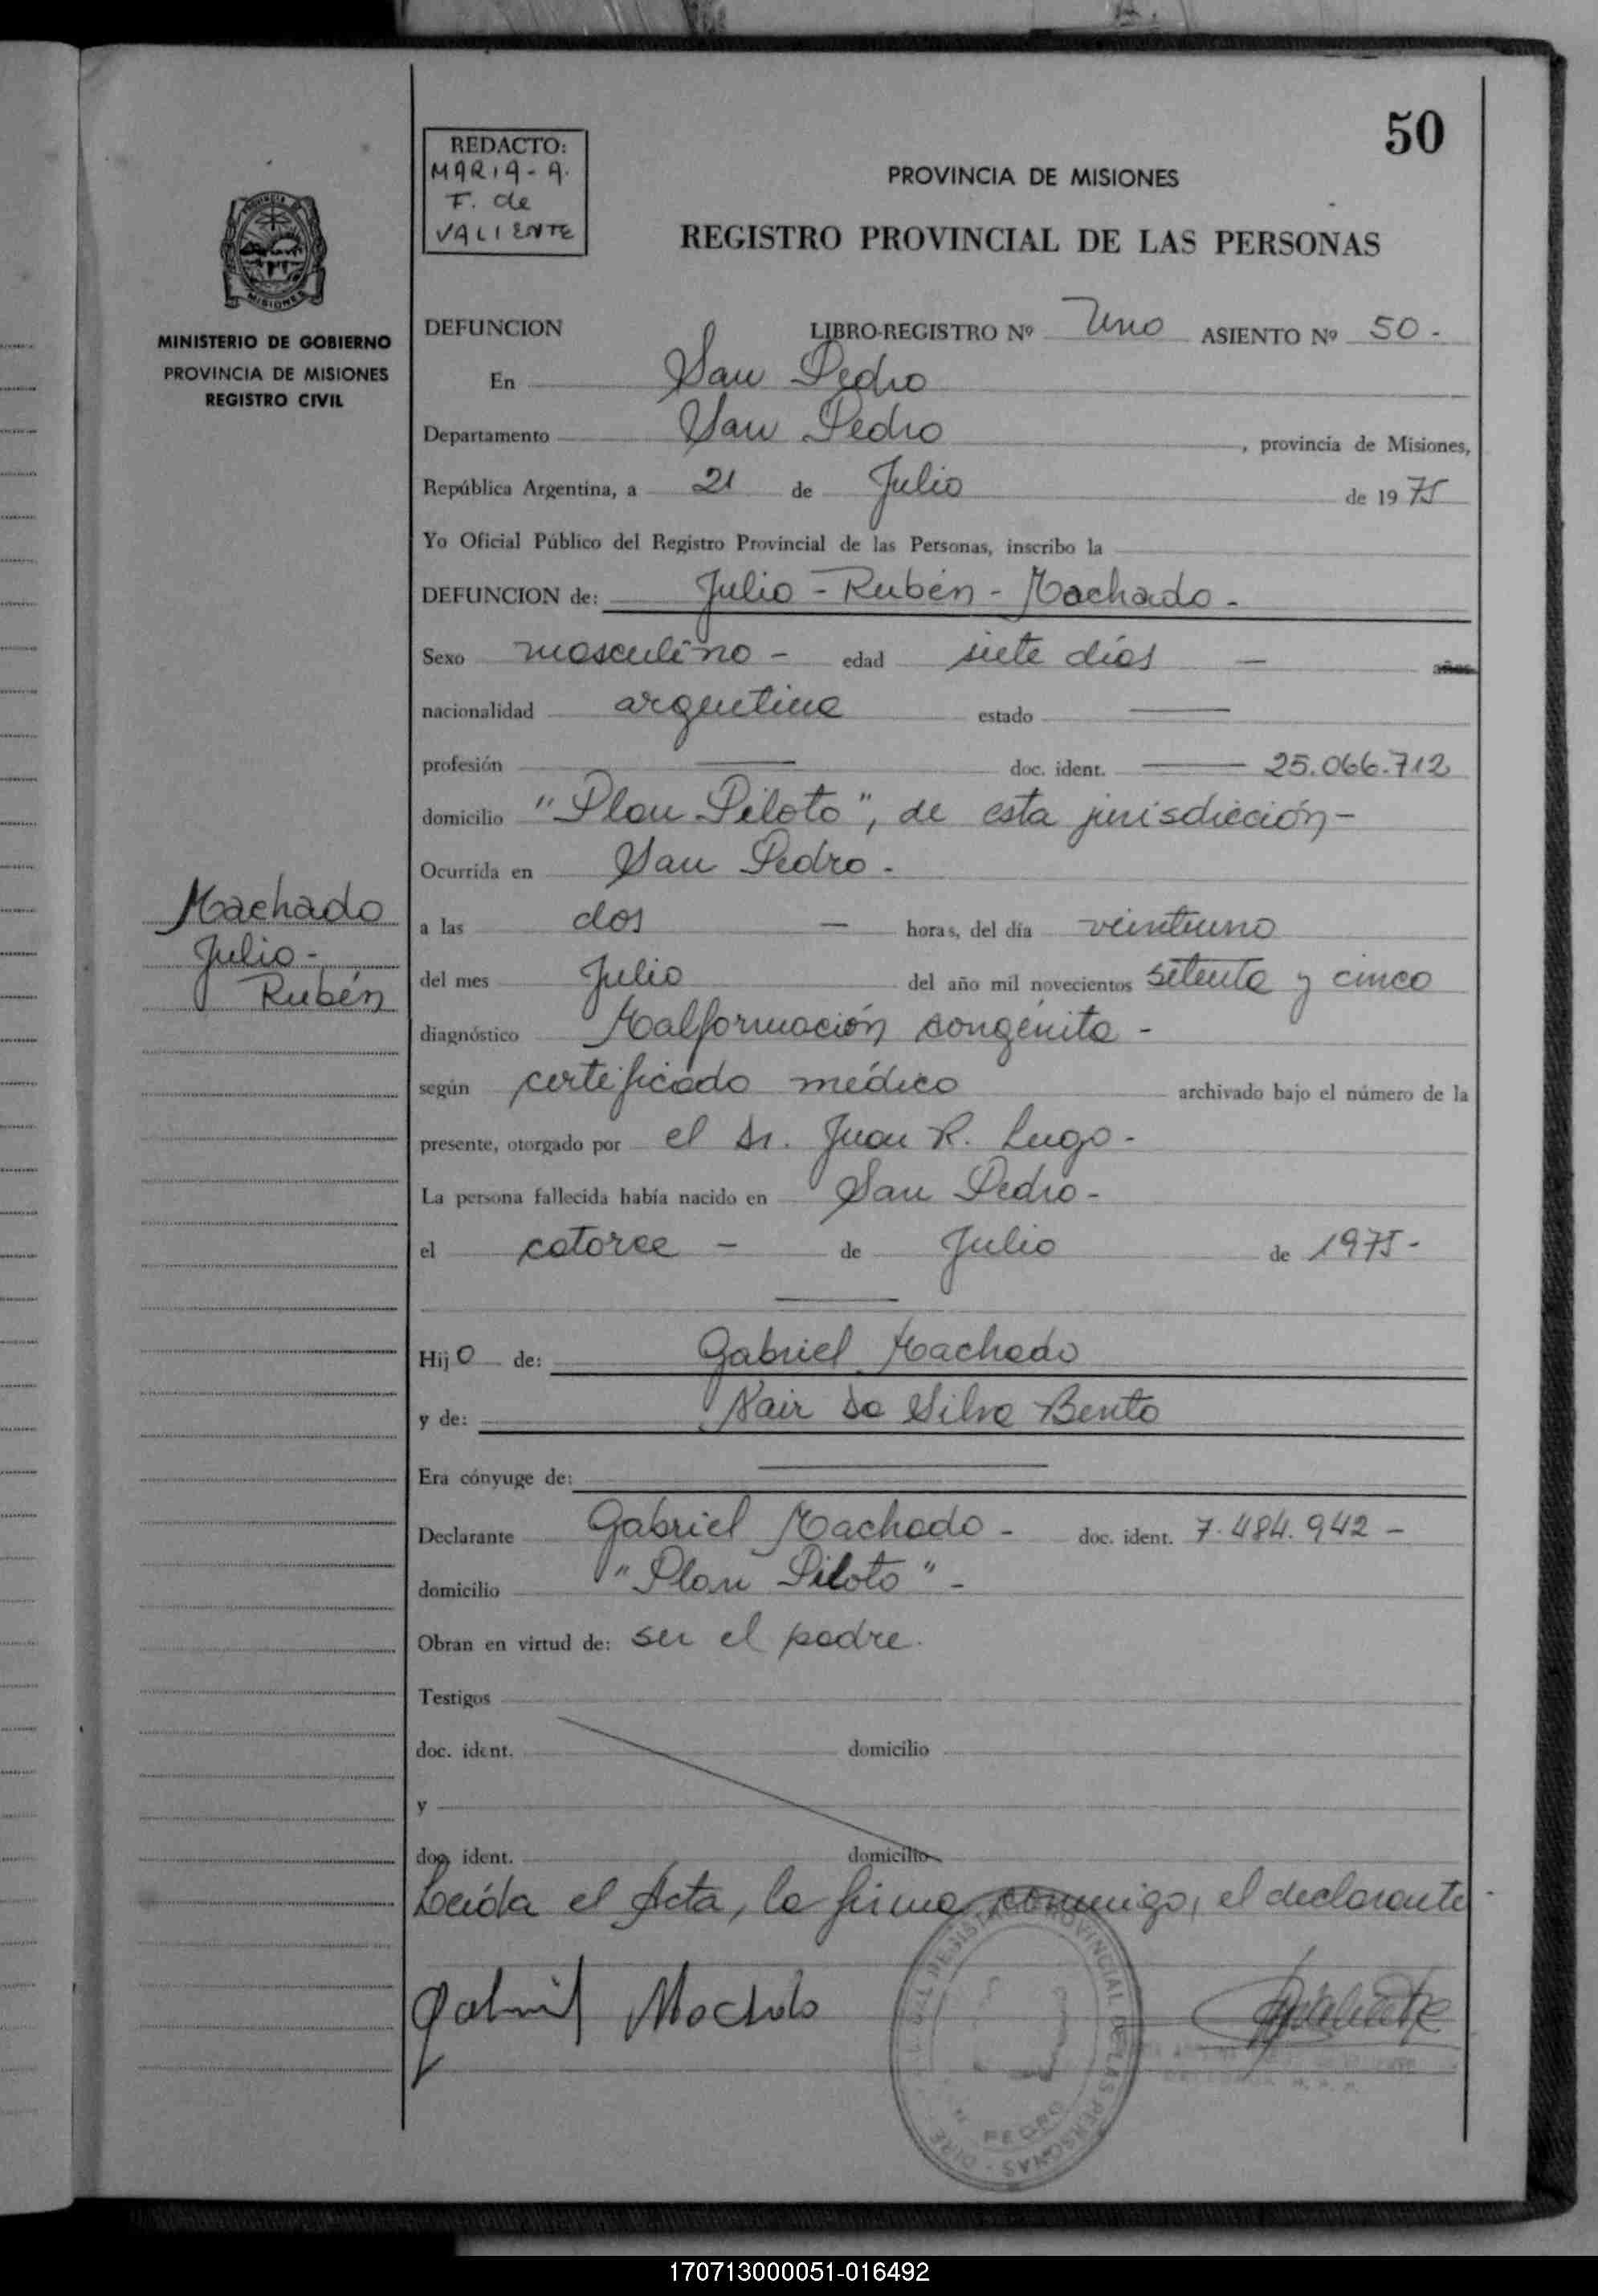 50
REDACTO:
MARIA - A.
F. de
VALIENTE
PROVINCIA DE MISIONES
REGISTRO PROVINCIAL DE LAS PERSONAS
MISIONES
MINISTERIO DE GOBIERNO
PROVINCIA DE MISIONES
REGISTRO CIVIL
DEFUNCION LIBRO-REGISTRO Nº Uno ASIENTO Nº 50 -
En San Pedro
Departamento San Pedro, provincia de Misiones,
República Argentina, a 21 de Julio de 1975
Yo Oficial Público del Registro Provincial de las Personas, inscribo la
DEFUNCION de: Julio - Rubén - Machado -
Sexo masculino - edad siete días - años
nacionalidad argentina estado —
profesión — doc. ident. — 25.066.712
domicilio "Plan Piloto", de esta jurisdicción -
Ocurrida en San Pedro -
a las dos — horas, del día veintiuno
del mes Julio del año mil novecientos setenta y cinco
diagnóstico Malformación congénita -
según certificado médico archivado bajo el número de la
presente, otorgado por el Dr. Juan R. Lugo -
La persona fallecida había nacido en San Pedro -
el catorce - de Julio de 1975 -
Machado
Julio -
Rubén
Hijo de: Gabriel Machado
y de: Nair Da Silva Bento
Era cónyuge de: —
Declarante Gabriel Machado - doc. ident. 7.484.942 -
domicilio "Plan Piloto" -
Obran en virtud de: ser el padre.
Testigos
doc. ident. domicilio
y
doc. ident. domicilio
Leída el Acta, la firma conmigo, el declarante -
Gabriel Machado
REGISTRO PROVINCIAL DE LAS PERSONAS
PEDRO
170713000051-016492